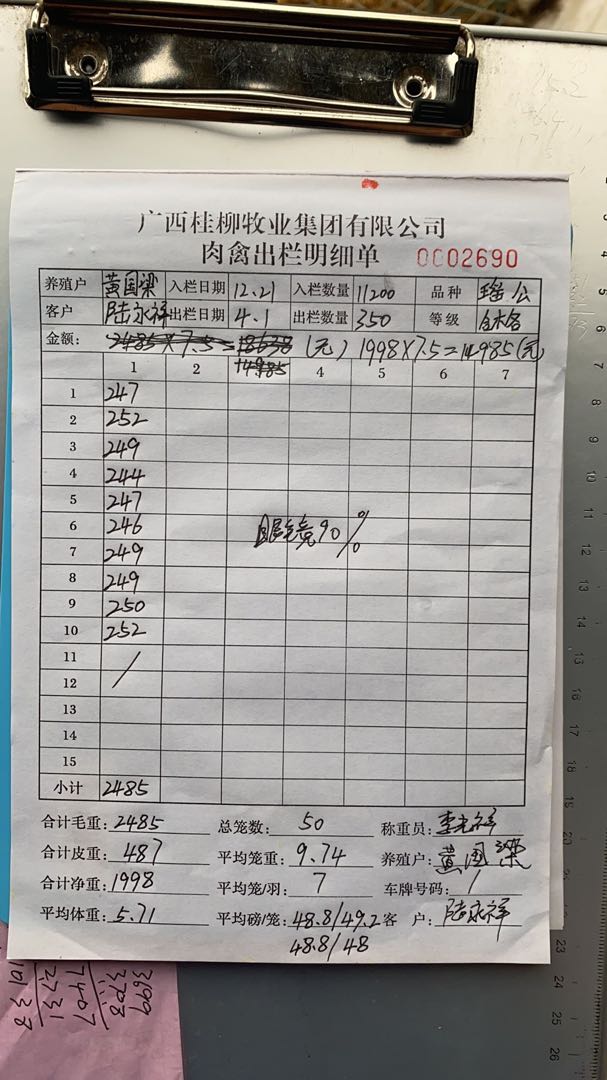 广西桂柳牧业集团有限公司
肉禽出栏明细单 0002690
养殖户 黄国梁 入栏日期 12.21 入栏数量 11200 品种 瑶公
客户 陆永祥 出栏日期 4.1 出栏数量 350 等级 合格
金额: 2485×7.5=18638 (元) 1998×7.5=14985(元)
14985
1 2 4 5 6 7
1 247
2 252
3 249
4 244
5 247
6 246 眼镜90%
7 249
8 249
9 250
10 252
11 /
12
13
14
15
小计 2485
合计毛重: 2485 总笼数: 50 称重员: 李光祥
合计皮重: 487 平均笼重: 9.74 养殖户: 黄国梁
合计净重: 1998 平均笼/羽: 7 车牌号码: /
平均体重: 5.71 平均磅/笼: 48.8/49.2 客 户: 陆永祥
48.8/48
3699
3708
7407
2731